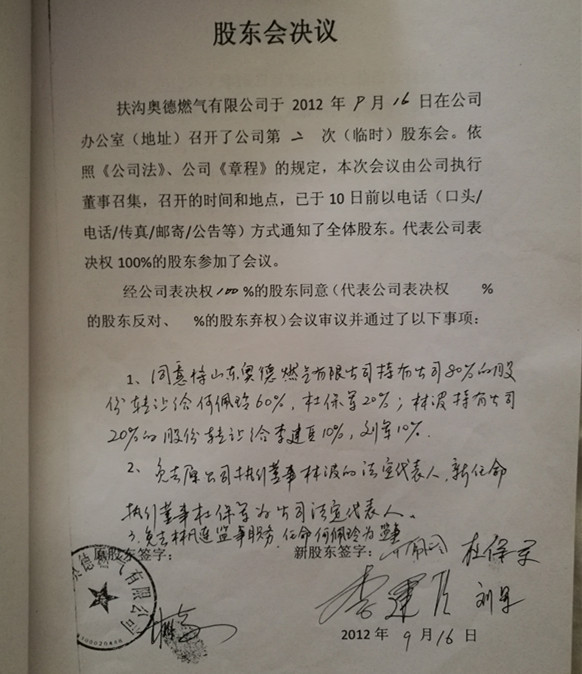 股东会决议
扶沟奥德燃气有限公司于 2012 年 9 月 16 日在公司
办公室（地址）召开了公司第 二 次（临时）股东会。依
照《公司法》、公司《章程》的规定，本次会议由公司执行
董事召集，召开的时间和地点，已于 10 日前以电话（口头/
电话/传真/邮寄/公告等）方式通知了全体股东。代表公司表
决权 100%的股东参加了会议。
经公司表决权 100 %的股东同意（代表公司表决权 %
的股东反对、 %的股东弃权）会议审议并通过了以下事项：
1、同意将山东奥德燃气有限公司持有公司80%的股
份转让给何佩玲60%，杜保军20%；林波持有公司
20%的股份转让给李建 10%，刘军10%.
2、免去 公司执行董事林波的法定代表人，新任命
执行董事杜保军为公司法定代表人。
3.免去林凡连监事职务，任命何佩玲为监事
原股东签字： 新股东签字： 杜保军
李建 刘军
燃气有限公司
2012 年 9 月 16 日